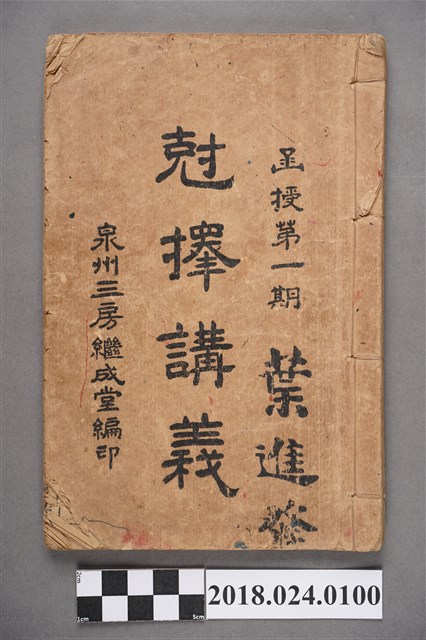 函授第一期
葉進發
尅擇講義
泉州三房繼成堂編印
2cm
1cm
5cm
2018.024.0100